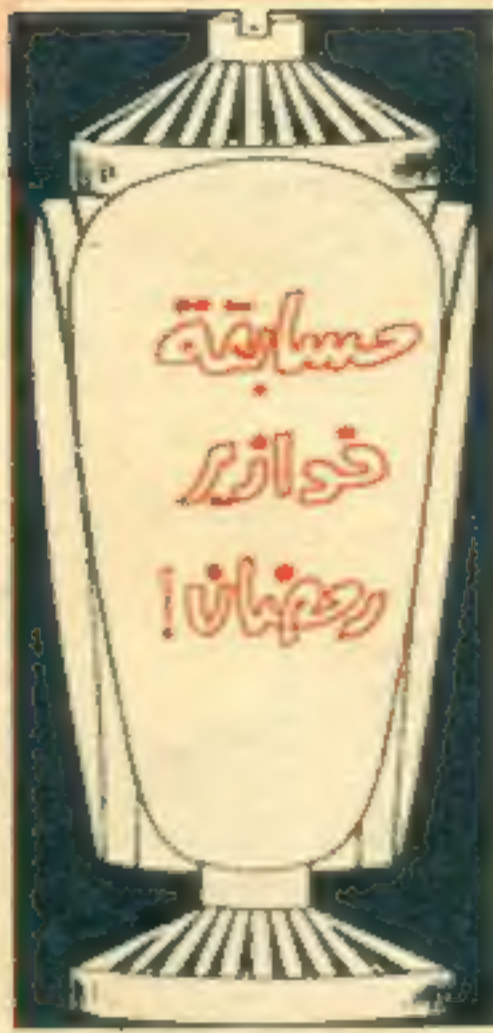 مسابقة
فوازير
رمضان!